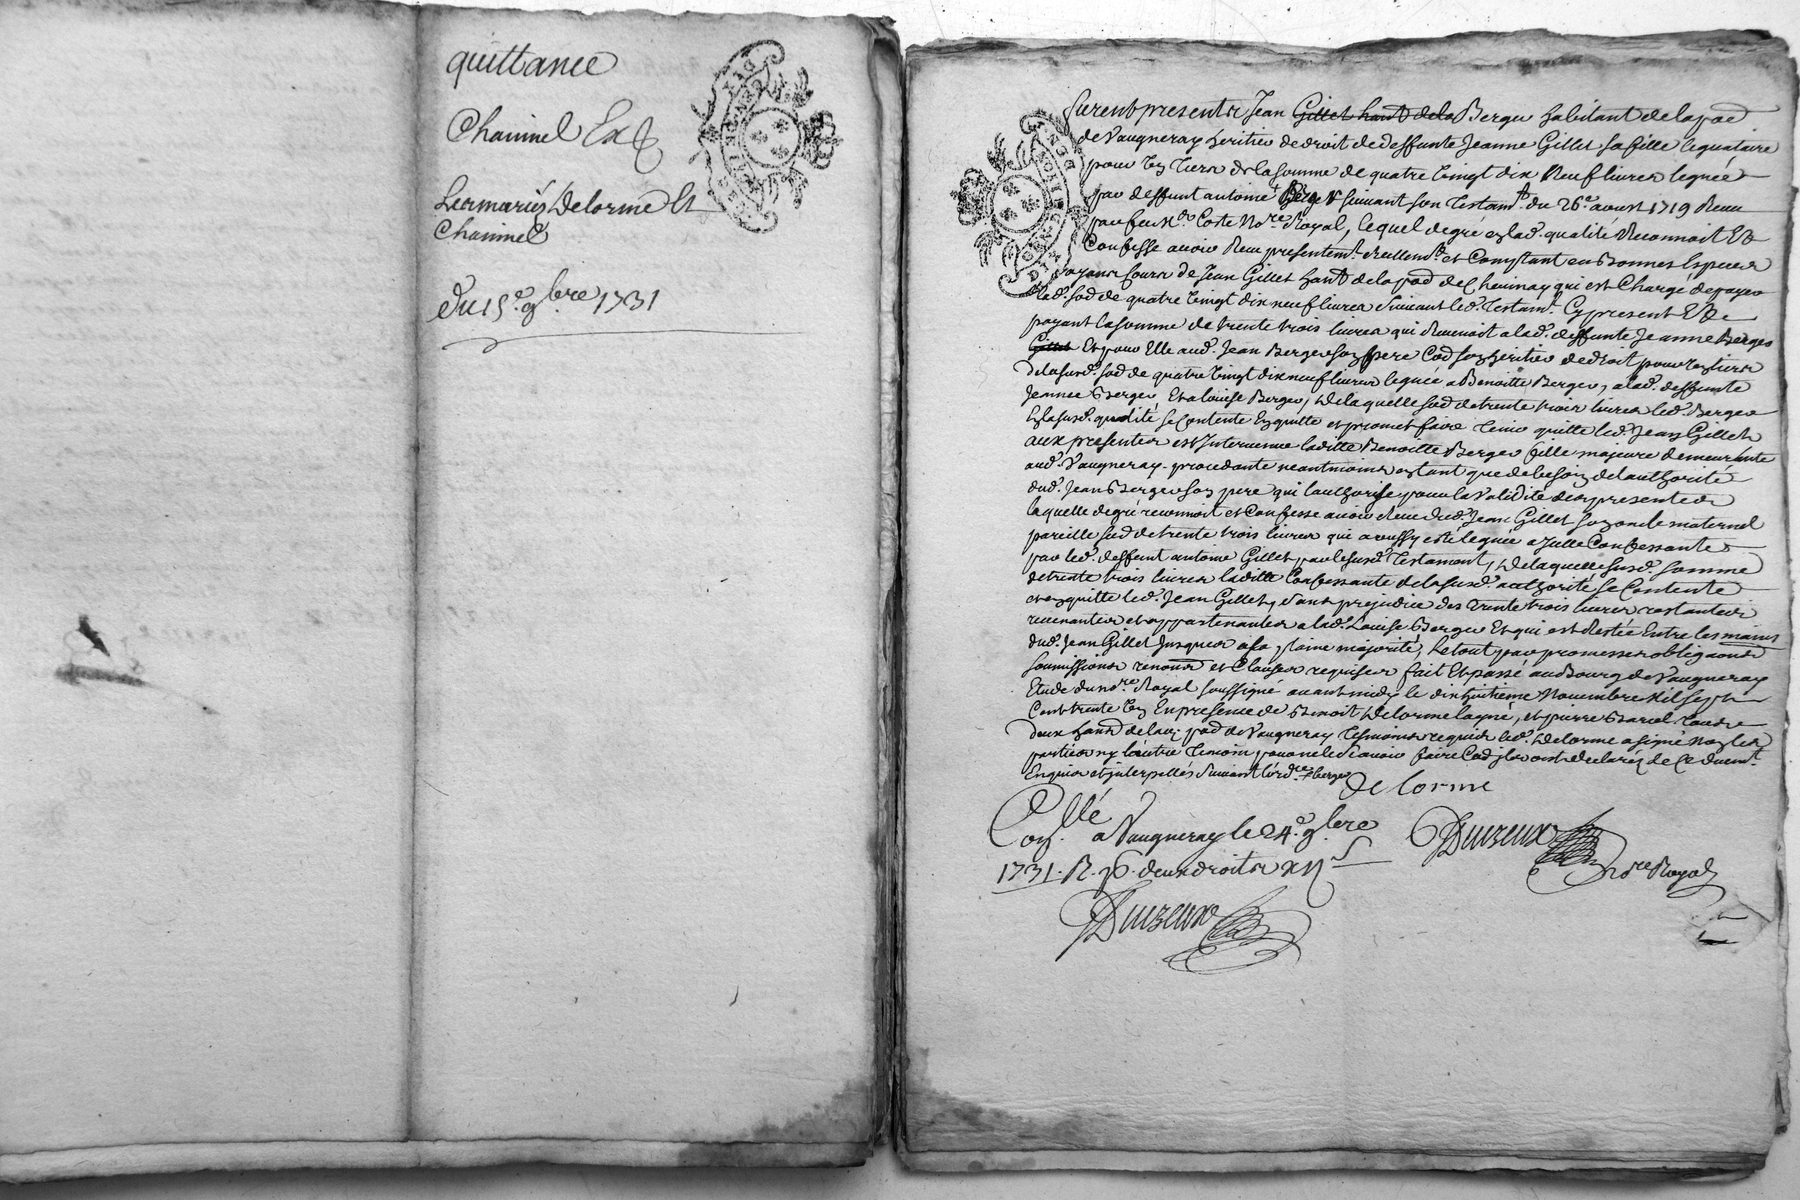 quittance
Chaninel Ex
Les mariés Delorme Et
Chaninel
du 15.e 9bre 1731
furent presents Jean Gillet hant de la Berger habitant de la pad
de Vaugneray heritier de droit de deffunte Jeanne Gillet sa fille legataire
pour un tiers de la somme de quatre vingt dix neuf livres leguée
par deffunt antoine Berger suivant son Testamt. du 26.e aoust 1719 Receu
par feu Coste Nore Royal, lequel de gre en lad. qualité Reconnoit Et
Confesse avoir Receu presentemt. reellemt. et Comptant en Bonnes Especes
ayans Cours de Jean Gillet hant de la pad de Chevinay qui est Chargé de payer
lad. sod de quatre vingt dix neuf livres suivant led. Testamt. Cy present Et
payant la somme de trente trois livres qui Revenoit a lad. deffunte Jeanne Berger
Gillet Et pour Elle aud. Jean Berger son pere Cod son heritier de droit pour un tiers
de lasusd. sod de quatre vingt dix neuf livres leguée a Benoitte Berger, a lad. deffunte
Jeanne Berger Et a Louise Berger, de laquelle sod de trente trois livres led. Berger
en lasusd. qualité se Contente En quitte et promet faire tenir quitte led. Jean Gillet,
aux presentes est Intervenue laditte Benoitte Berger fille majeure demeurante
aud. Vaugneray procedante neantmoins en tant que de besoin de l'authorité
dud. Jean Berger son pere qui l'authorise pour la Validité des presentes
laquelle de gré reconnoit et Confesse avoir Receu dud. Jean Gillet son oncle maternel
pareille sod de trente trois livres qui a aussy esté leguée a Jcelle Confessante
par led. deffunt antoine Gillet par le susd. Testament, de laquelle susd. somme
de trente trois livres laditte Confessante de la susd. authorité se Contente
et en quitte led. Jean Gillet, sans prejudice des trente trois livres restantes
revenantes et appartenantes a lad. Louise Berger Et qui est Restée Entre les mains
dud. Jean Gillet Jusques a sa plaine majorité, le tout par promesses obligaons
soumissions renons et Clauses requises fait Et passé au Bourg de Vaugneray
Etude du nore Royal soussigné avant midy le dix huitieme Novembre Mil sept
Cent trente Un En presence de Benoit Delorme layné, et pierre Bariol
deux hants de lad. pad de Vaugneray Tesmoins requis led. Delorme a signé non les
parties ny l'autre Temoin pour ne le scavoir faire Cod ils ont declarés de Ce duemt.
Enquis et interpellés Suivant l'ordce + berger
De lorme
Collé
Con. a Vaugneray le 24.e 9bre
1731. R. deux droits
Duvzeux
Nore Royal
Duvzeux